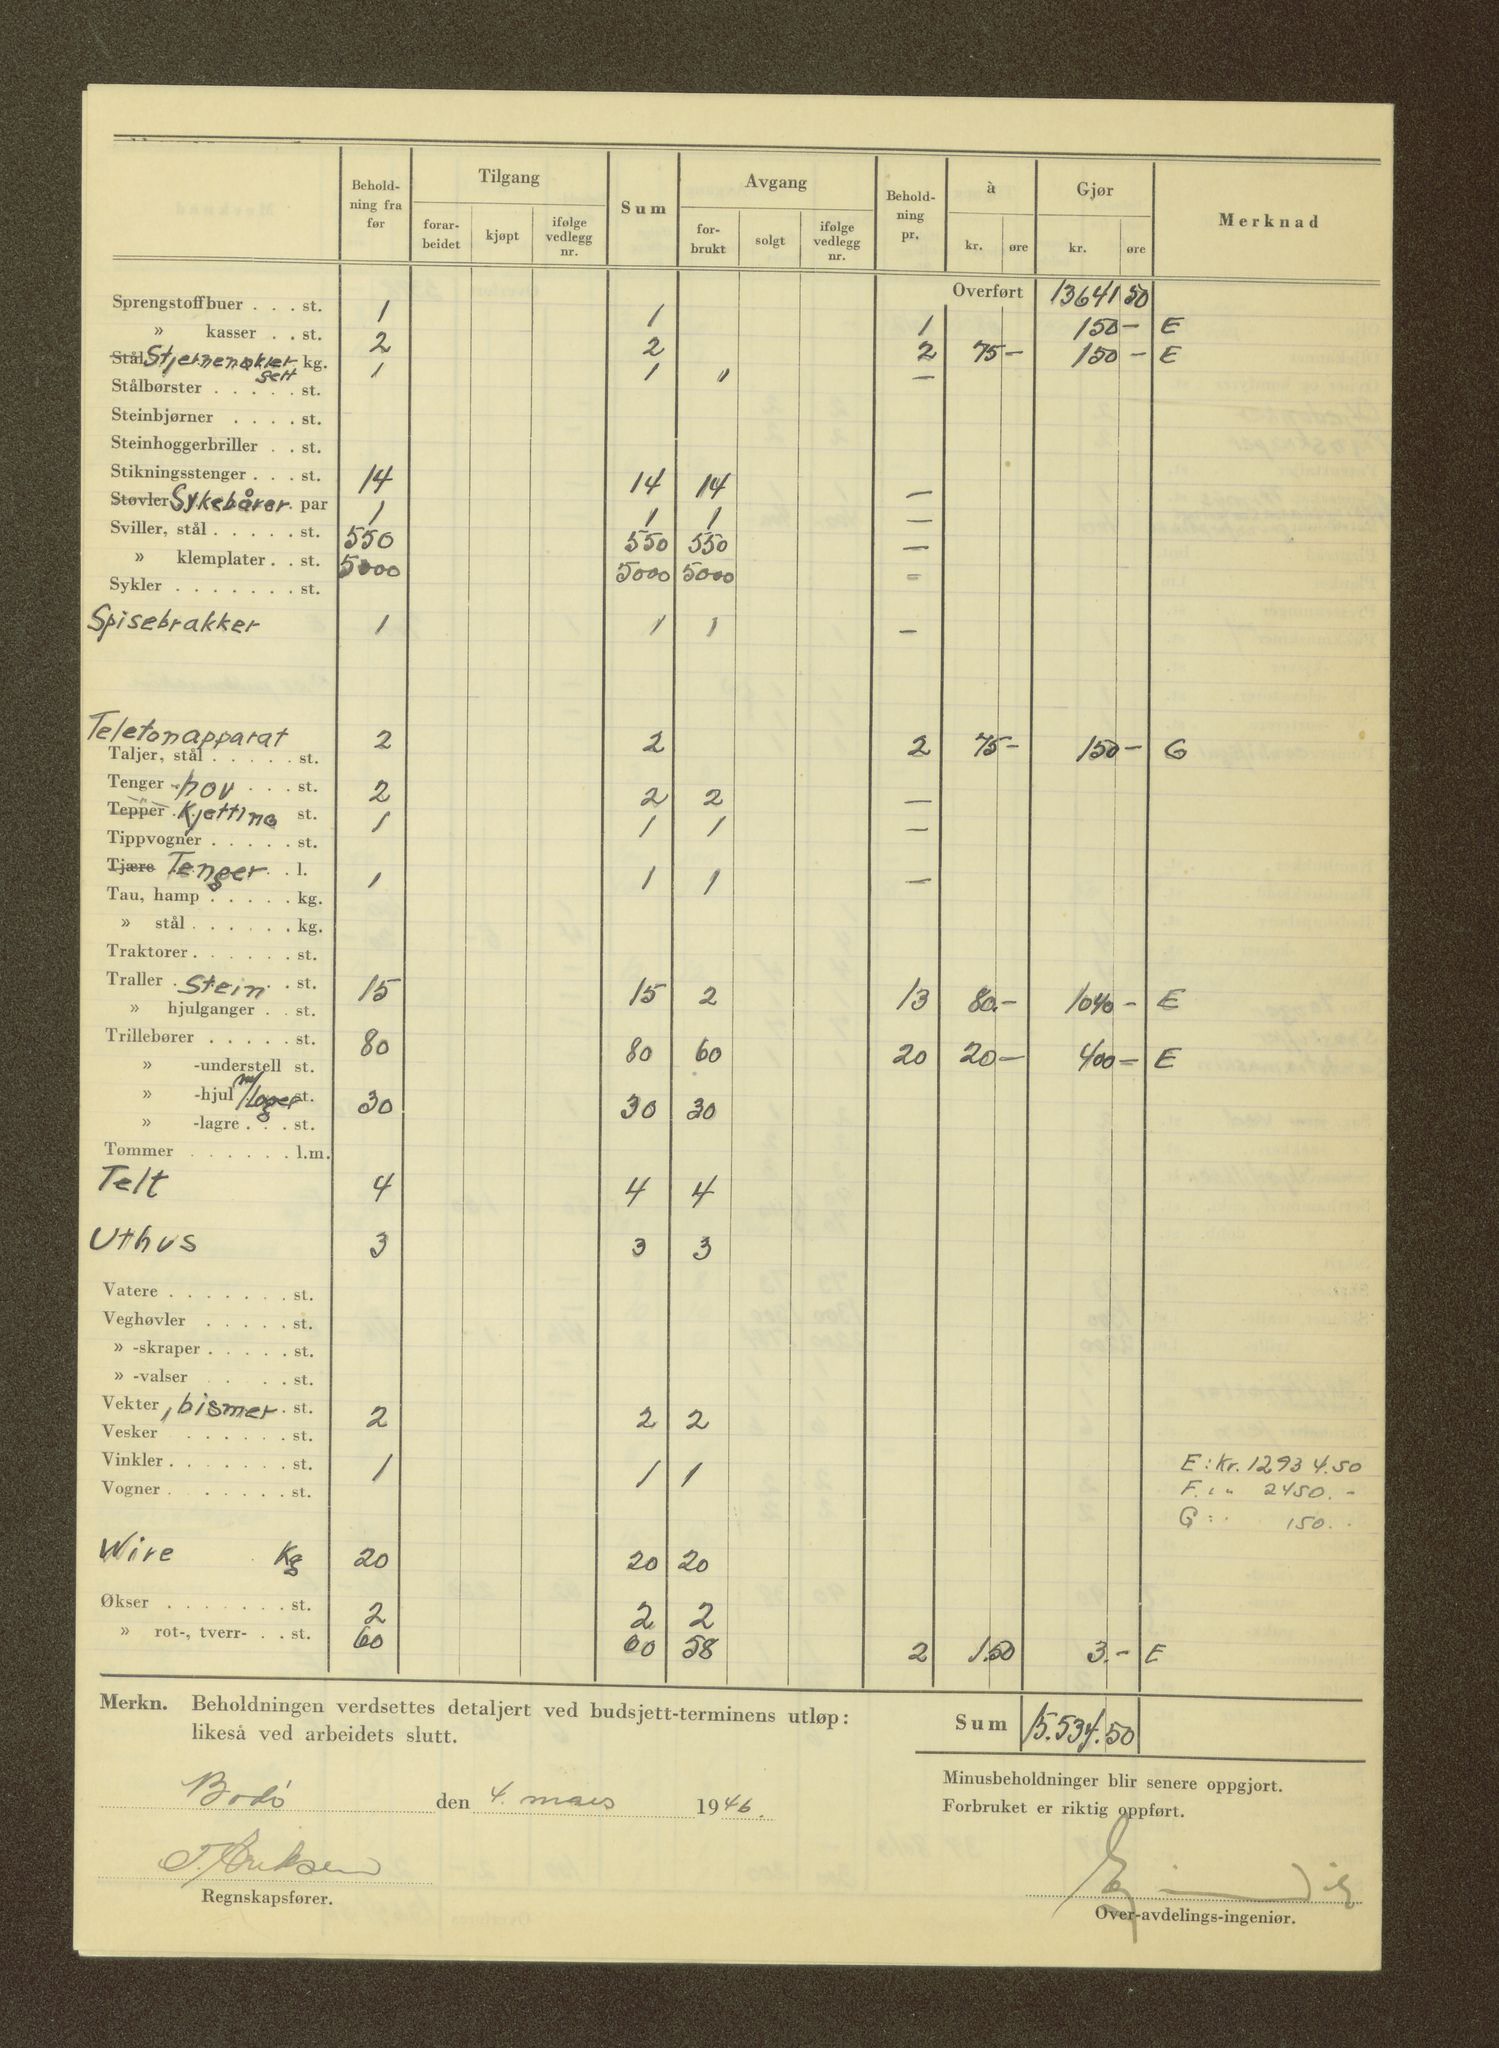 Behold- Tilgang Avgang Behold- à Gjør
ning fra Sum ning Merknad
før forar- kjøpt ifølge for- solgt ifølge pr. kr. øre kr. øre
beidet vedlegg brukt vedlegg
nr. nr.
Overført 13641 50
Sprengstoffbuer . . . st. 1 1 1 150 – E
» kasser . . st. 2 2 2 75 – 150 – E
Stål Stjernenøkler sett kg. 1 1 " —
Stålbørster . . . . . st.
Steinbjørner . . . . st.
Steinhoggerbriller . . st.
Stikningsstenger . . . st. 14 14 14 —
Støvler Sykebårer. par 1 1 1 —
Sviller, stål . . . . . st. 550 550 550 —
» klemplater . . st. 5000 5000 5000 =
Sykler . . . . . . . st.
Spisebrakker 1 1 1 —
Telefonapparat 2 2 2 75 – 150 – G
Taljer, stål . . . . . st.
Tenger -hov . . . st. 2 2 2 —
Tepper Kjetting st. 1 1 1 —
Tippvogner . . . . . st.
Tjære Tenger . . l. 1 1 1 —
Tau, hamp . . . . . kg.
» stål . . . . . . kg.
Traktorer . . . . . . st.
Traller . Stein . . st. 15 15 2 13 80.– 1040 – E
» hjulganger . . st.
Trillebører . . . . . st. 80 80 60 20 20 – 400 – E
» -understell st.
» -hjul m/lager st. 30 30 30
» -lagre . . . st.
Tømmer . . . . . . l.m.
Telt 4 4 4
Uthus 3 3 3
Vatere . . . . . . . st.
Veghøvler . . . . . st.
» -skraper . . . . . st.
» -valser . . . . st.
Vekter, bismer . st. 2 2 2
Vesker . . . . . . st.
Vinkler . . . . . . . st. 1 1 1 E : Kr. 12934.50
Vogner . . . . . . . st. F. : " 2450. –
G : . 150. .
Wire . Kg 20 20 20
Økser . . . . . . . st. 2 2 2
» rot-, tverr- . . st. 60 60 58 2 1.50 3.– E
Merkn. Beholdningen verdsettes detaljert ved budsjett-terminens utløp: Sum 15.534.50
likeså ved arbeidets slutt.
Minusbeholdninger blir senere oppgjort.
Bodø den 4. mars 1946. Forbruket er riktig oppført.
Regnskapsfører. Over-avdelings-ingeniør.